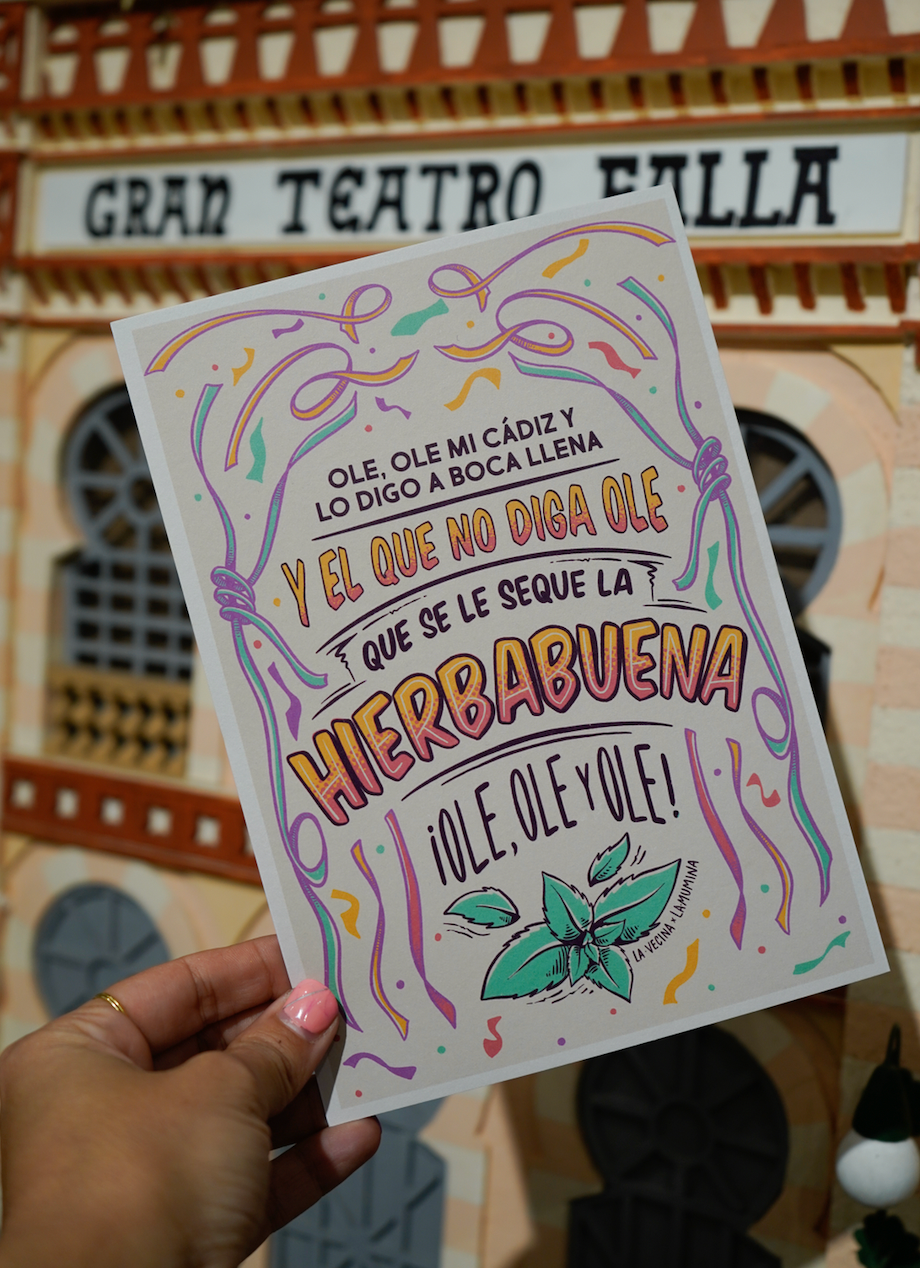 GRAN TEATRO FALLA
OLE, OLE MI CÁDIZ Y
LO DIGO A BOCA LLENA
Y EL QUE NO DIGA OLE
QUE SE LE SEQUE LA
HIERBABUENA
¡OLE, OLE Y OLE!
LA VECINA x LAMUMINA